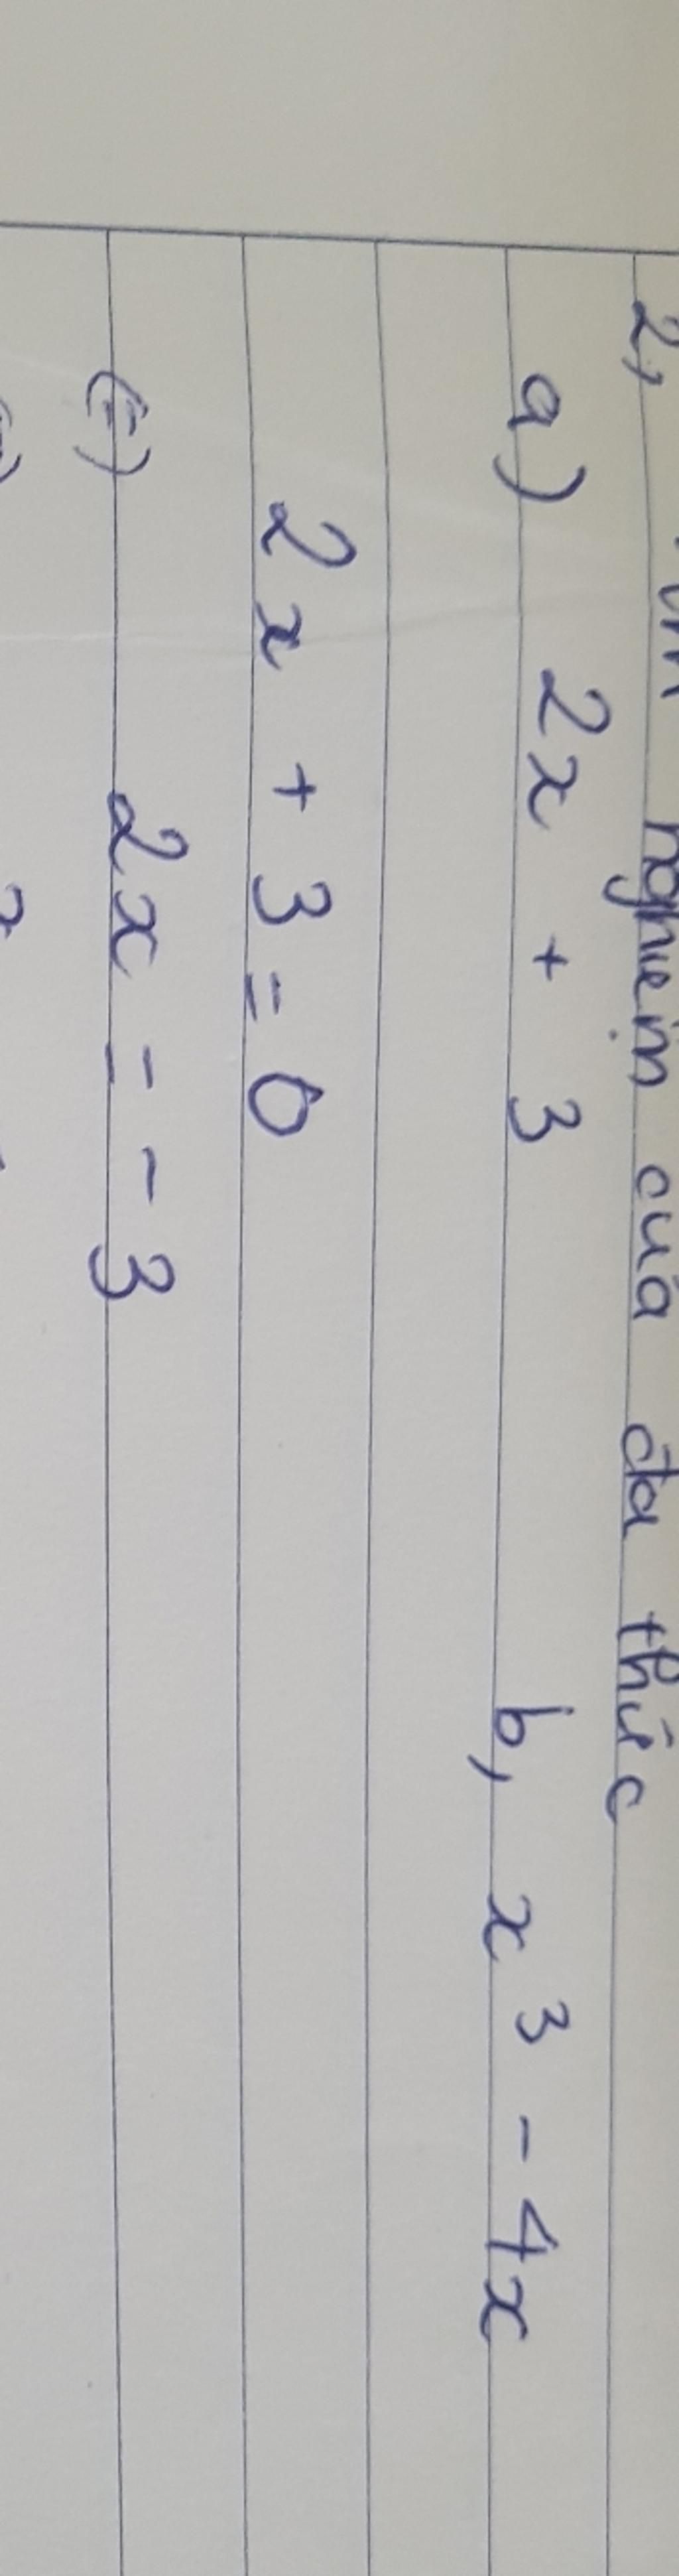 2, nghiệm của đa thức
a) 2x + 3 b, x³ - 4x
2x + 3 = 0
(=) 2x = - 3